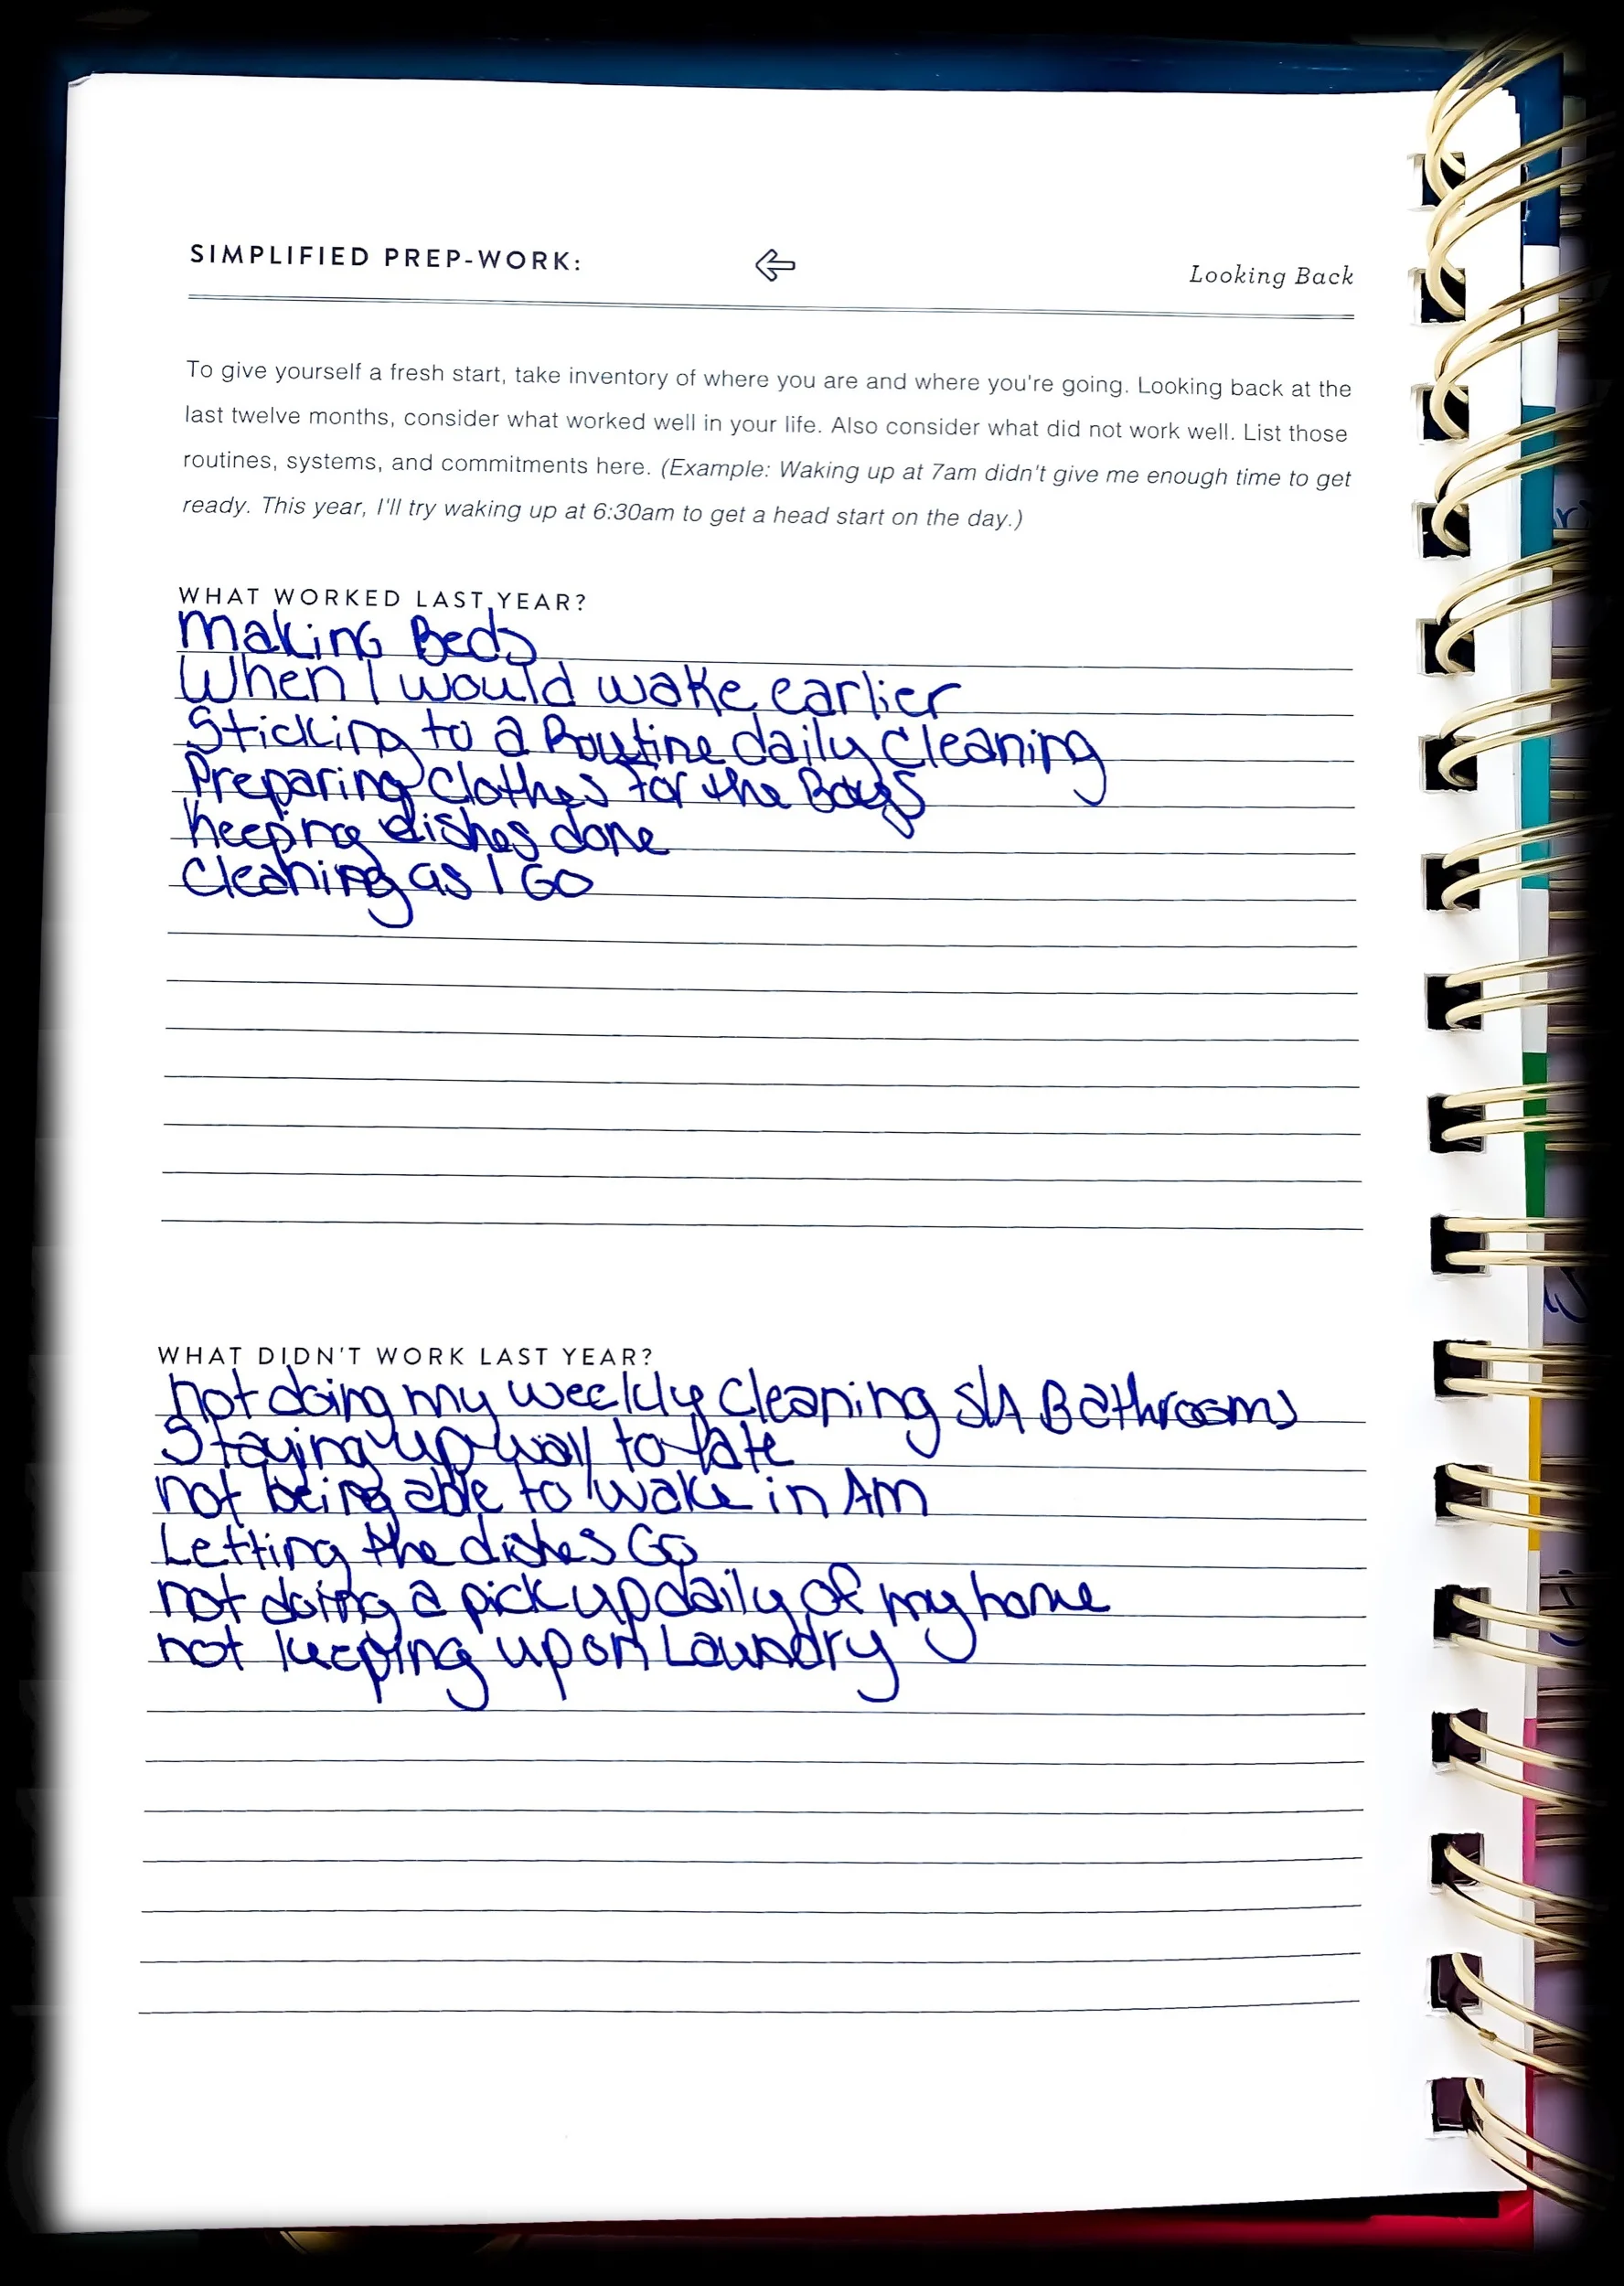 SIMPLIFIED PREP-WORK:
Looking Back
To give yourself a fresh start, take inventory of where you are and where you're going. Looking back at the
last twelve months, consider what worked well in your life. Also consider what did not work well. List those
routines, systems, and commitments here. (Example: Waking up at 7am didn't give me enough time to get
ready. This year, I'll try waking up at 6:30am to get a head start on the day.)
WHAT WORKED LAST YEAR?
Making Beds
When I would wake earlier
Sticking to a Routine daily Cleaning
Preparing clothes for the Boys
Keeping dishes done
Cleaning as I Go
WHAT DIDN'T WORK LAST YEAR?
not doing my weekly Cleaning Bathrooms
Staying up way to late
not being able to wake in AM
Letting the dishes Go
not doing a pick up daily of my home
not keeping up on Laundry